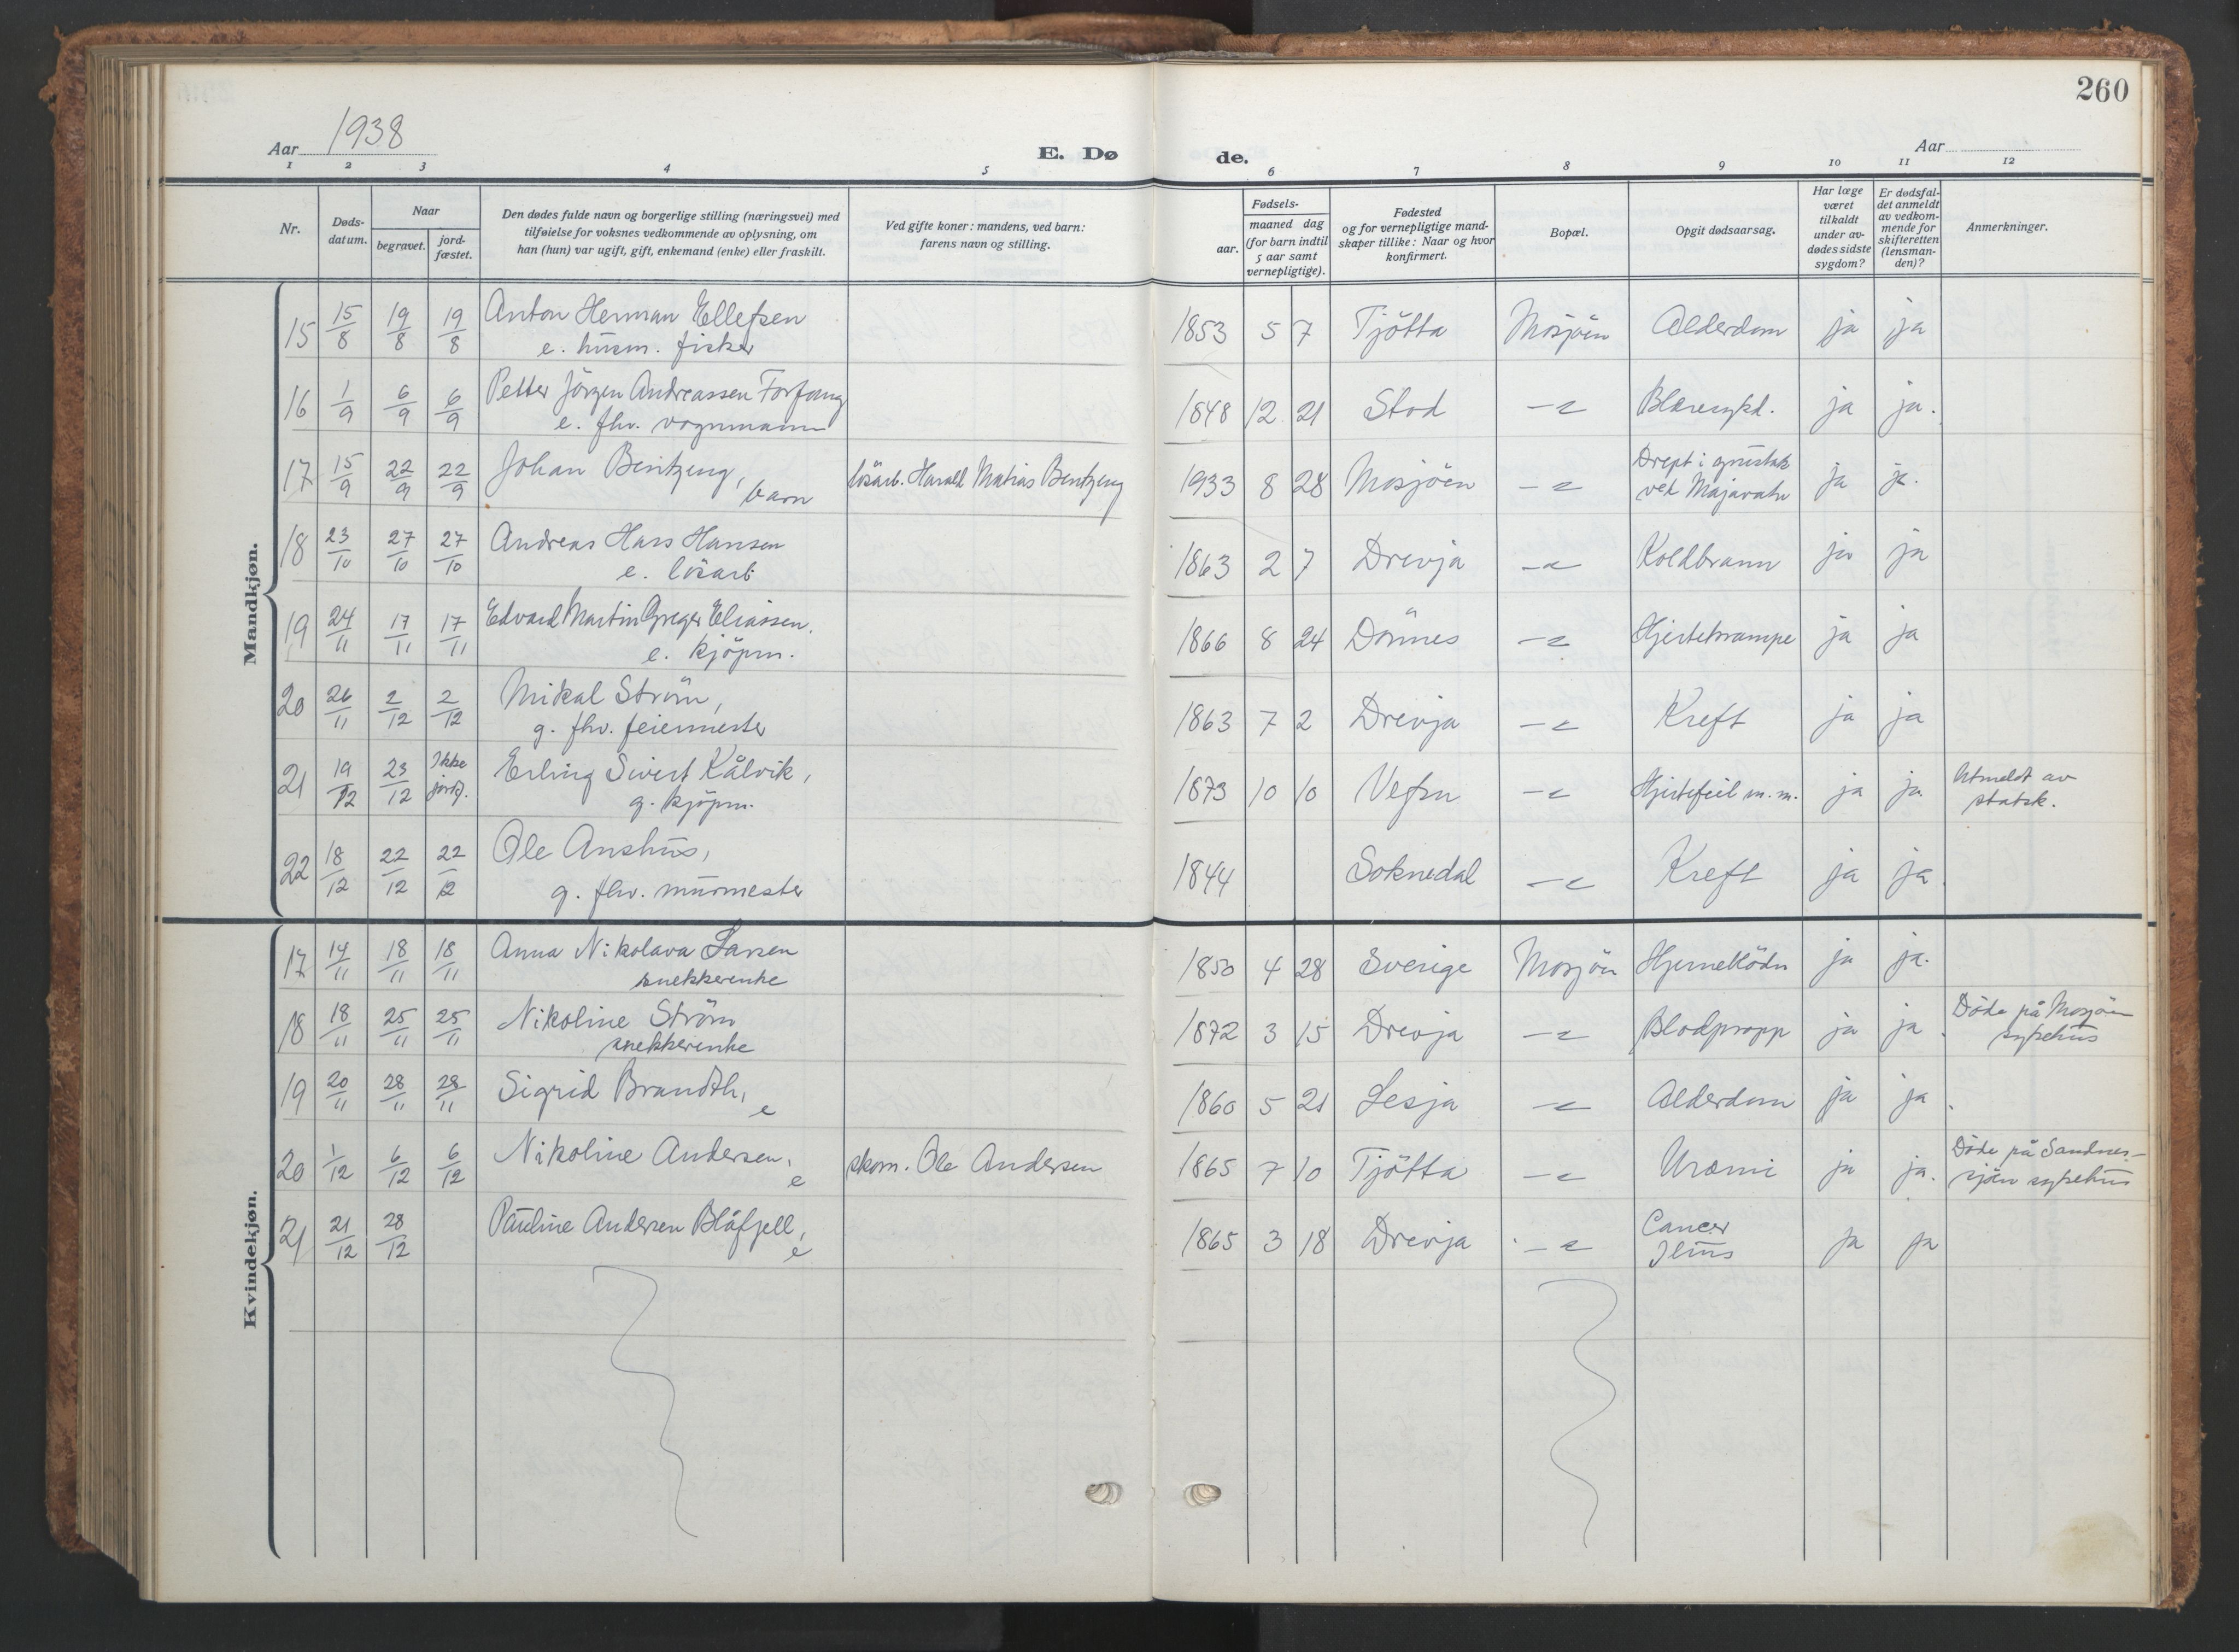 260
Aar 1938
E. Dø
de.
Aar
1 2 3 4 5 6 7 8 9 10 11 12
Nr.
Døds-
datum.
Naar
begravet.
jord-
fæstet.
Den dødes fulde navn og borgerlige stilling (næringsvei) med
tilføielse for voksnes vedkommende av oplysning, om
han (hun) var ugift, gift, enkemand (enke) eller fraskilt.
Ved gifte koner: mandens, ved barn:
farens navn og stilling.
Fødsels-
aar.
maaned dag
(for barn indtil
5 aar samt
vernepligtige).
Fødested
og for vernepligtige mand-
skaper tillike: Naar og hvor
konfirmert.
Bopæl.
Opgit dødsaarsag.
Har læge
været
tilkaldt
under av-
dødes sidste
sygdom?
Er dødsfal-
det anmeldt
av vedkom-
mende for
skifteretten
(lensman-
den)?
Anmerkninger.
Mandkjøn.
15 15/8 19/8 19/8 Anton Herman Ellefsen 1853 5 7 Tjötta Mosjöen Alderdom ja ja
e. husm. fisker
16 1/9 6/9 6/9 Petter Jörgen Andreassen Forfang 1848 12 21 Stod Blæresykd. ja ja.
e. fhv. vognmann
17 15/9 22/9 22/9 Johan Bentzeng, lösarb. Harald Matias Bentzeng 1933 8 28 Mosjöen Drept i grustak ja ja.
barn ved Majavatn
18 23/10 27/10 27/10 Andreas Hans Hansen 1863 2 7 Drevja Koldbrann ja ja
e. lösarb.
19 24/11 17/11 17/11 Edvard Martin Greger Eliassen. 1866 8 24 Dönnes Hjertekrampe ja ja
e. kjöpm.
20 26/11 2/12 2/12 Mikal Ström, 1863 7 2 Drevja Kreft ja ja
g. fhv. feiermester
21 19/12 23/12 Ikke jordf. Erling Sivert Kålvik, 1873 10 10 Vefsn Hjertefeil m.m. ja ja Utmeldt av
g. kjöpm. statsk.
22 18/12 22/12 22/12 Ole Anshus, 1844 Soknedal Kreft ja ja
g. fhv. murmester
Kvindekjøn.
17 14/11 18/11 18/11 Anna Nikolava Larsen 1850 4 28 Sverige Mosjöen Hjerneblödn ja ja.
snekkerenke
18 18/11 25/11 25/11 Nikoline Ström 1872 3 15 Drevja Blodpropp ja ja Döde på Mosjöen
snekkerenke sykehus
19 20/11 28/11 28/11 Sigrid Brandth, e 1860 5 21 Lesja Alderdom ja ja
20 1/12 6/12 6/12 Nikoline Andersen, e skom. Ole Andersen 1865 7 10 Tjötta Uræmi ja ja. Döde på Sandnes-
sjöen sykehus
21 21/12 28/12 Pauline Andersen Blåfjell, e 1865 3 18 Drevja Cancer ja ja
Ileus